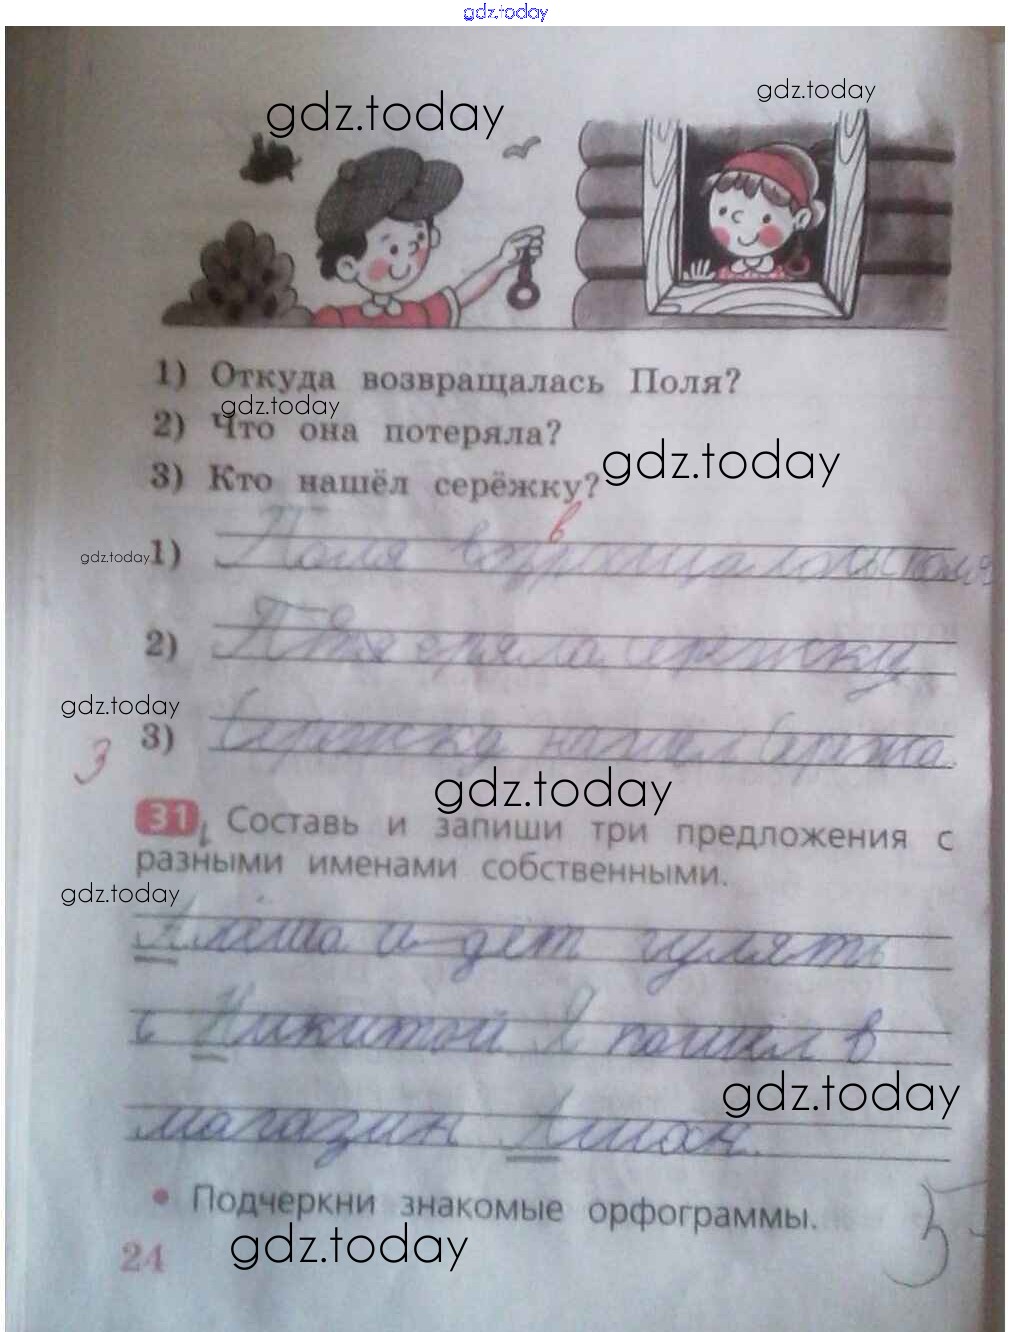 gdz.today
gdz.today
gdz.today
1) Откуда возвращалась Поля?
gdz.today
2) Что она потеряла?
gdz.today
3) Кто нашёл серёжку?
в
gdz.today
1) Поля
2)
gdz.today
3) нашел Сережа
3
gdz.today
31 Составь и запиши три предложения с
разными именами собственными.
gdz.today
Алёша и дёт гулять
с Никитой Я пошел в
gdz.today
магазин Ашан.
• Подчеркни знакомые орфограммы.
5-
gdz.today
24